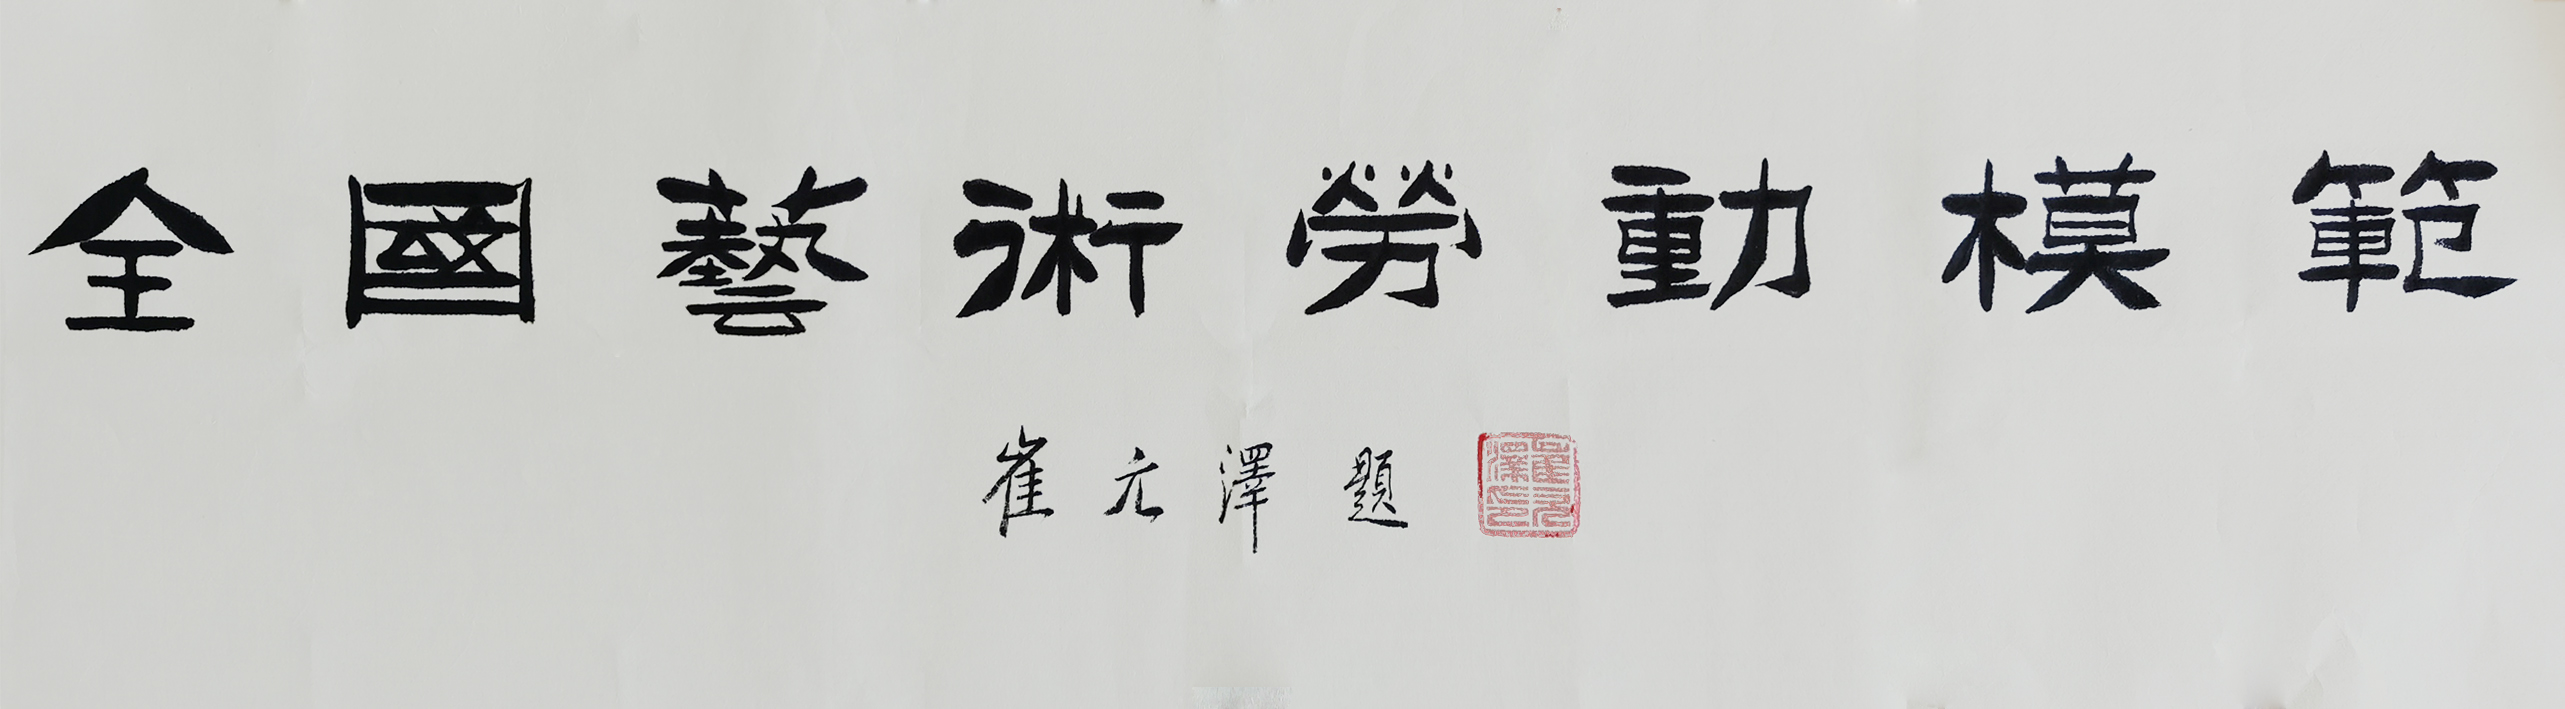 全國藝術勞動模範
崔元澤題
崔元澤印